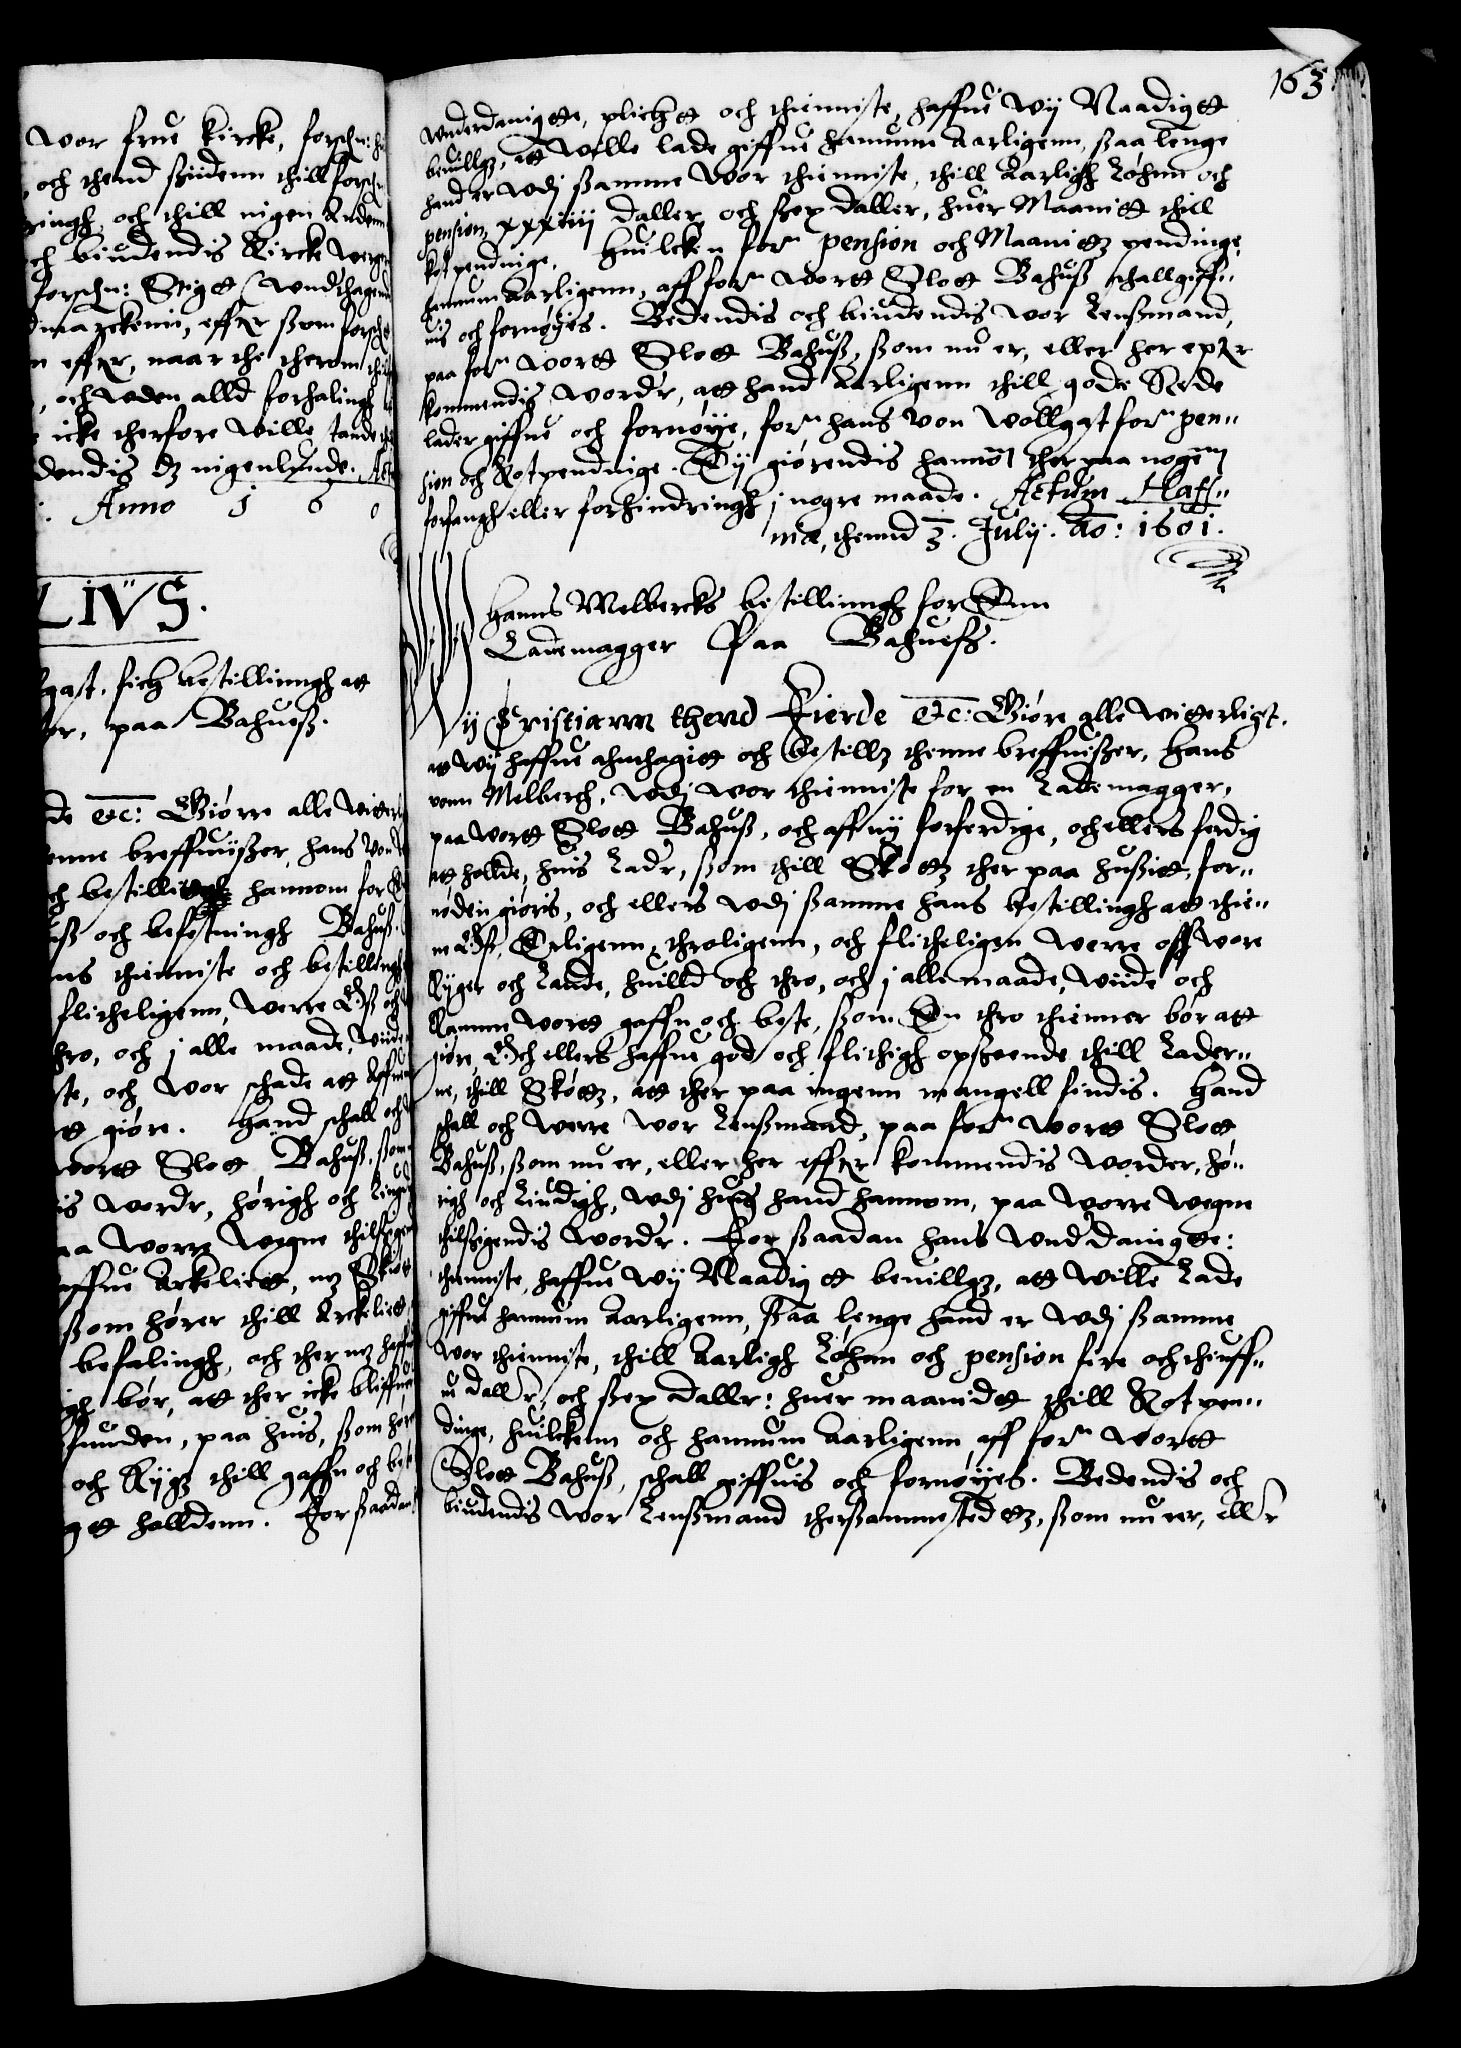 wor frue kircke, forschn:
och thend szidenn thill forschn
ringh, och thill nigen Andenn
och biudendis Kircke werger
forschn: Stigtt Wndthagend
dmarckenn, effter szom forsch
n effter, naar the therom
, och vden alld forhalingh
icke therfore wille tande
dendis dz nigenlunde. Act
. Anno 1 6 0
LIVS.
lgast. fich bestillinngh att
er, paa Bahuesz.
de etc: Giørre alle witter
enne breffuiszer, hans von
och bestillett hannom for
usz och befestningh Bahusz.
ns thienniste och bestillingh
flitteligenn, werre Osz och
thro, och j alle maade, Viide
ste, och wor schade att affuer
tt giøre. Hand schall och
wortt Slott Bahusz, szom
is wordr, hørigh och Lindigh
aa worre wegne thilsigen
affue Arkeliett, mz Skøtt
szom hører thill Arkeliett,
befalingh, och ther mz haffue
igh bør, att ther icke bliffuer
funden, paa huis, szom hør
och Rygz thill gaffn och best
gtt holldenn. For saadan
163
wnderdanigtte, plichtt och thienniste, haffue wij Naadigtt
beuillgz, att wille lade giffue hannum Aarligenn, saa lenge
hand er wdj szamme wor thienniste, thill Aarligh Løhnn och
pension, xxxiiij daller, och szex daller, huer Maanitt thill
kostpendnige. Huilcken forn pension och Maanitz pendinge,
hannum Aarligenn, aff forn wortt Slott Bahusz schall giff„
uis och fornøyes. Bedendis och biudendis wor Lenszmand,
paa forn wortt Slott Bahusz, szom nu er, eller her epter
kommendis wordr, att hand Aarligenn thill gode Rede
lader giffue och fornøije, forn hans von Wollgast forn pen„
sion och Kostpendnige. Ey giørendis hannom ther paa nogenn
forfangh eller forhindringh j nogre maade. Actum Haff„
niæ, thennd 3. Julij. Ao: 1601.
Hanns Melbercks bestillinngh for Enn
Lademagger Paa Bahuesz.
Wij Christiann thend Fierde etc: Giøre alle witterligt.
at wij haffue anthagitt och bestillz thenne breffuiszer, Hans
vonn Melberch, wdj wor thienniste for en Lademagger,
paa wortt Slott Bahusz, och aff nij forferdige, och ellers ferdig
att hollde, huis Ladr, szom thill Skøttz ther paa huszitt, for„
nøden giøris, och ellers wdj szamme hans bestillingh att thie„
ne Osz, Erligenn, throligenn, och flitteligen werre Osz wore
Ryger och Lande, huilld och thro, och j alle maade, wiide och
Ramme wortt gaffn och beste, szom En thro thienner bør att
giøre, Och ellers haffue god och flittigh opszeende thill Lader„
ne, thill Skøttz, att ther paa ingenn mangell findis. Hand
schall och werre wor Lenszmand, paa forn wortt Slott
Bahusz, szom nu er, eller her effter kommendis worder, hø„
righ och Lindigh, wdj huis hand hannom, paa worre wegne
thilsigendis wordr. For szaadan hans wnddanigtte:
thienniste, haffue wij Naadigtt beuillgz, att wille Lade
giffue hannum Aarligenn, szaa lenge hand er wdj szamme
wor thienniste, thill Aarligh Løhan och pension fire och thiuff„
ue dallr, och szex dallr: huer maanidtt thill Kost pen„
dinge, huilckenn och hannum Aarligenn aff forn wortt
Slott Bahusz, schall giffuis och fornøyes. Bedendis och
biudendis wor Lenszmand therszammestedtz, szom nu er, ellr